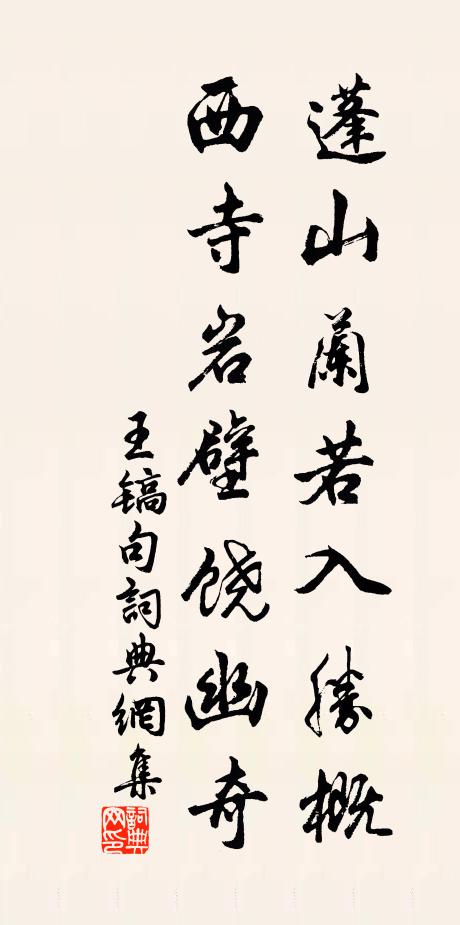 蓬山蘭若入勝概
西寺岩壁饶幽奇
王镐句詞典網集
詞典网印